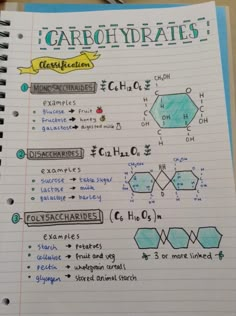 CARBOHYDRATES
Classification
1 MONOSACCHARIDES C6 H12 O6
examples
glucose → fruit
fructose → honey
galactose → digested milk
CH2OH
H
OH
2 DISACCHARIDES C12 H22 O11
examples
sucrose → table sugar
lactose → milk
galactose → barley
3 POLYSACCHARIDES (C6 H10 O5)n
examples
starch → potatoes
cellulose → fruit and veg
pectin → wholegrain cereals
glycogen → stored animal starch
3 or more linked